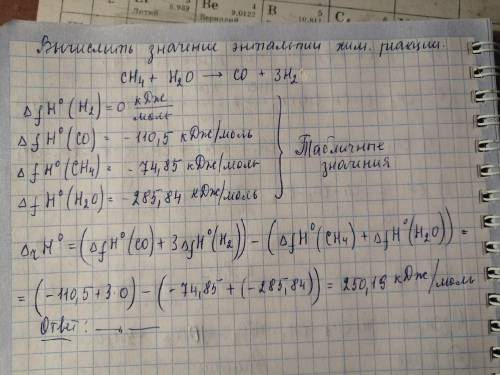 Li Be B C
Литий 6,939 9,0122 10,811
Вычислить значение энтальпии хим. реакции.
CH₄ + H₂O → CO + 3H₂
ΔfH°(H₂) = 0 кДж/моль
ΔfH°(CO) = -110,5 кДж/моль
ΔfH°(CH₄) = -74,85 кДж/моль
ΔfH°(H₂O) = -285,84 кДж/моль
Табличные значения
ΔrH° = (ΔfH°(CO) + 3ΔfH°(H₂)) - (ΔfH°(CH₄) + ΔfH°(H₂O)) =
= (-110,5 + 3·0) - (-74,85 + (-285,84)) = 250,19 кДж/моль
Ответ: